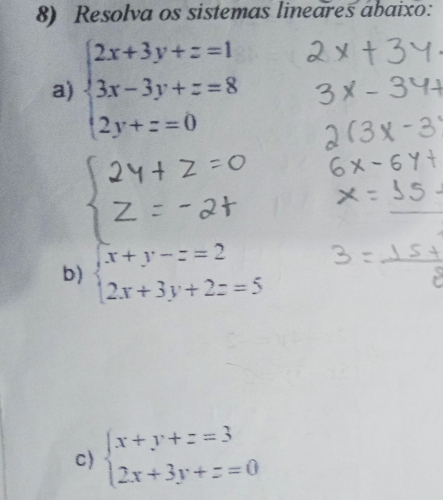 8) Resolva os sistemas lineares abaixo:
a) 2x+3y+z=1
3x-3y+z=8
2y+z=0
2x + 3y
3x - 3y+
2(3x - 3
6x - 6y +
x = 15
2y + z = 0
z = -2t
3 = 15+
8
b) x+y-z=2
2x+3y+2z=5
c) x+y+z=3
2x+3y+z=0